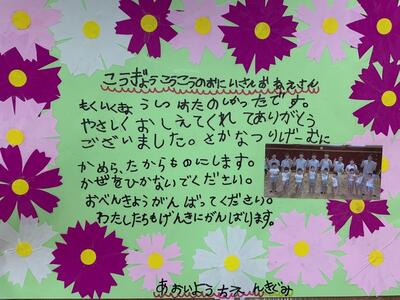 こうぎょうこうこうのおにいさんおねえさん
もくいくきょうしつはたのしかったです。
やさしくおしえてくれてありがとう
ございました。さかなつりげーむに
かめら、たからものにします。
かぜをひかないでください。
おべんきょうがんばってください。
わたしたちもげんきにがんばります。
あおいようちえん